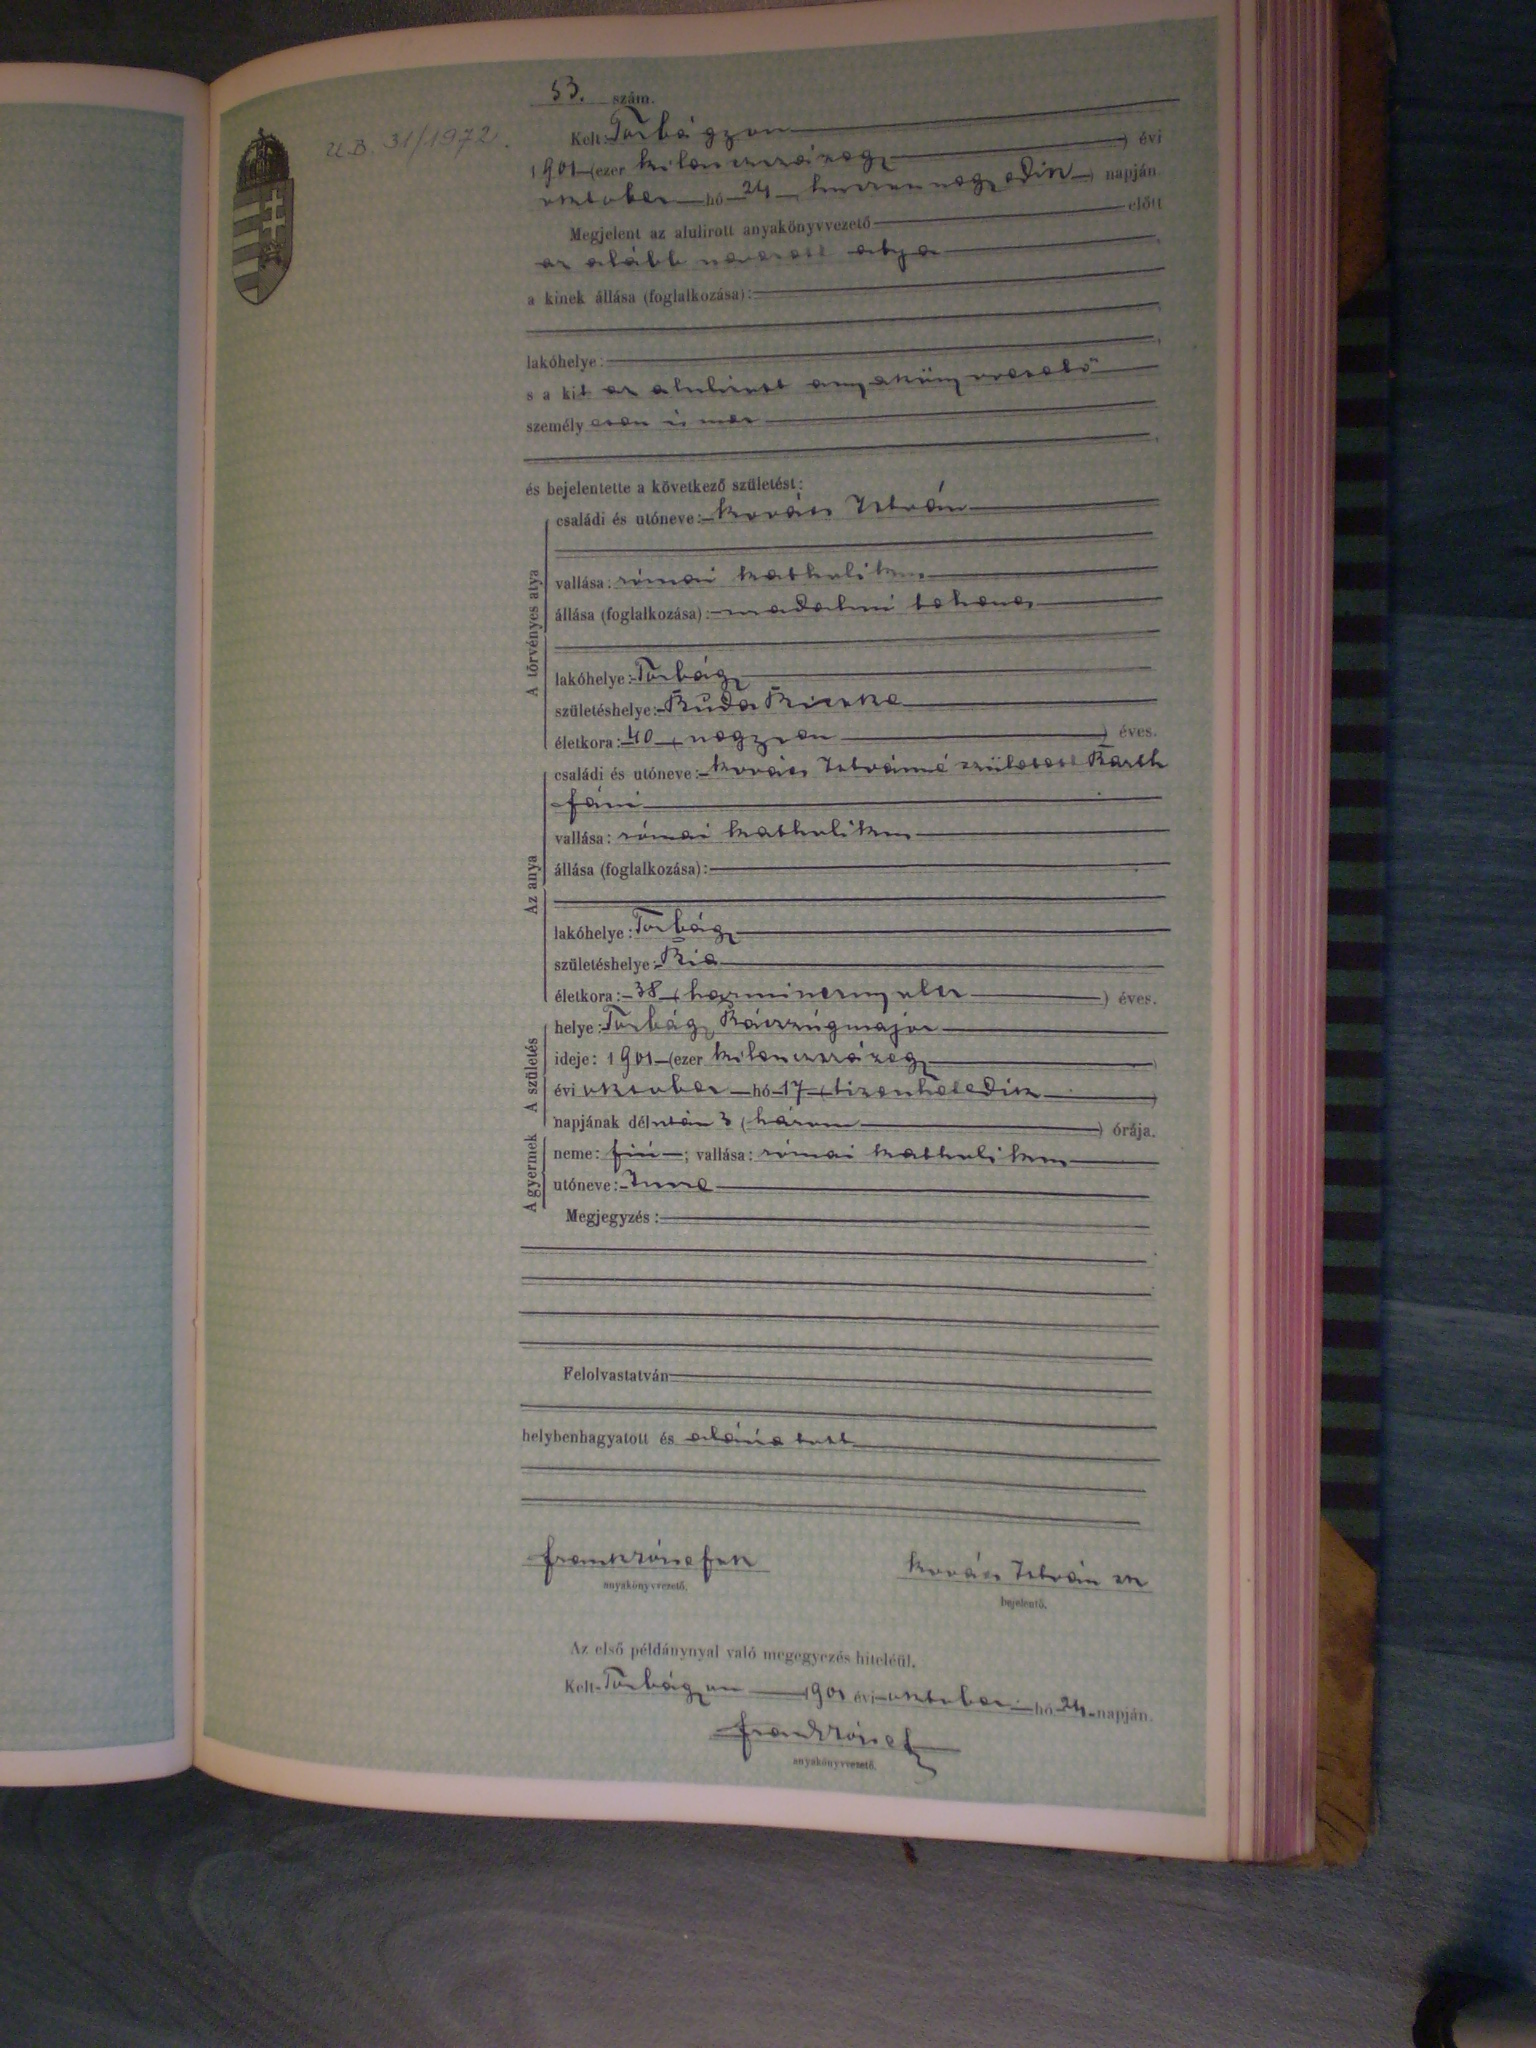 53. szám.
U.B. 31/1972.
Kelt: Torbágyon
1901 (ezer kilenczszázegy ) évi
október hó 24 (huszonnegyedik ) napján
Megjelent az alulirott anyakönyvvezető előtt
az alább nevezett atya
a kinek állása (foglalkozása):
lakóhelye:
s a kit az alulirott anyakönyvvezető
személy
és bejelentette a következő születést:
A törvényes atya
családi és utóneve: Kovács István
vallása: római katholikus
állása (foglalkozása):
lakóhelye: Torbágy
születéshelye:
életkora: 40 (negyven ) éves.
Az anya
családi és utóneve: Kovács Istvánné született Barth
Fáni
vallása: római katholikus
állása (foglalkozása):
lakóhelye: Torbágy
születéshelye: Bia
életkora: 38 (harmincznyolcz ) éves.
A születés
helye: Torbágy
ideje: 1901 (ezer kilenczszázegy )
évi október hó 17 (tizenhetedik )
napjának délután 3 (három ) órája.
A gyermek
neme: fiú ; vallása: római katholikus
utóneve: Imre
Megjegyzés:
Felolvastatván
helybenhagyatott és aláíratott
anyakönyvvezető.
Kovács István
bejelentő.
Az első példánynyal való megegyezés hiteléül.
Kelt Torbágyon 1901 évi október hó 24 napján.
anyakönyvvezető.